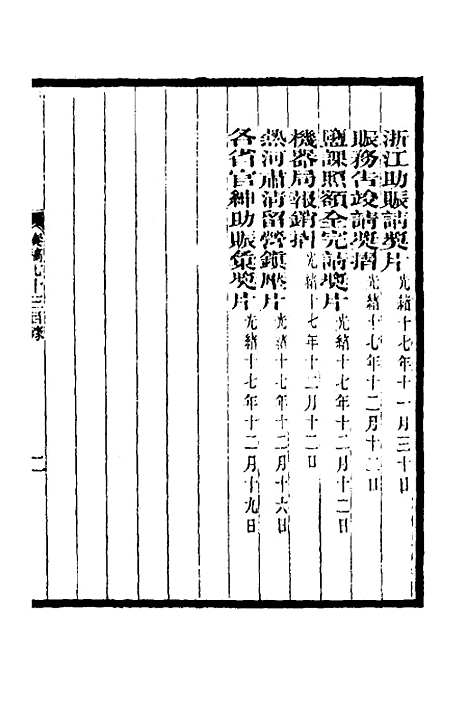 浙江助賑請奬片 光緒十七年十一月三十日
賑務告竣請奬摺 光緒十七年十二月十二日
鹽課照額全完請奬片 光緒十七年十二月十二日
機器局報銷摺 光緒十七年十二月十二日
熱河肅淸留營鎮壓片 光緒十七年十二月十六日
各省官紳助賑彙奬片 光緒十七年十二月十九日
奏議七十三目錄
二